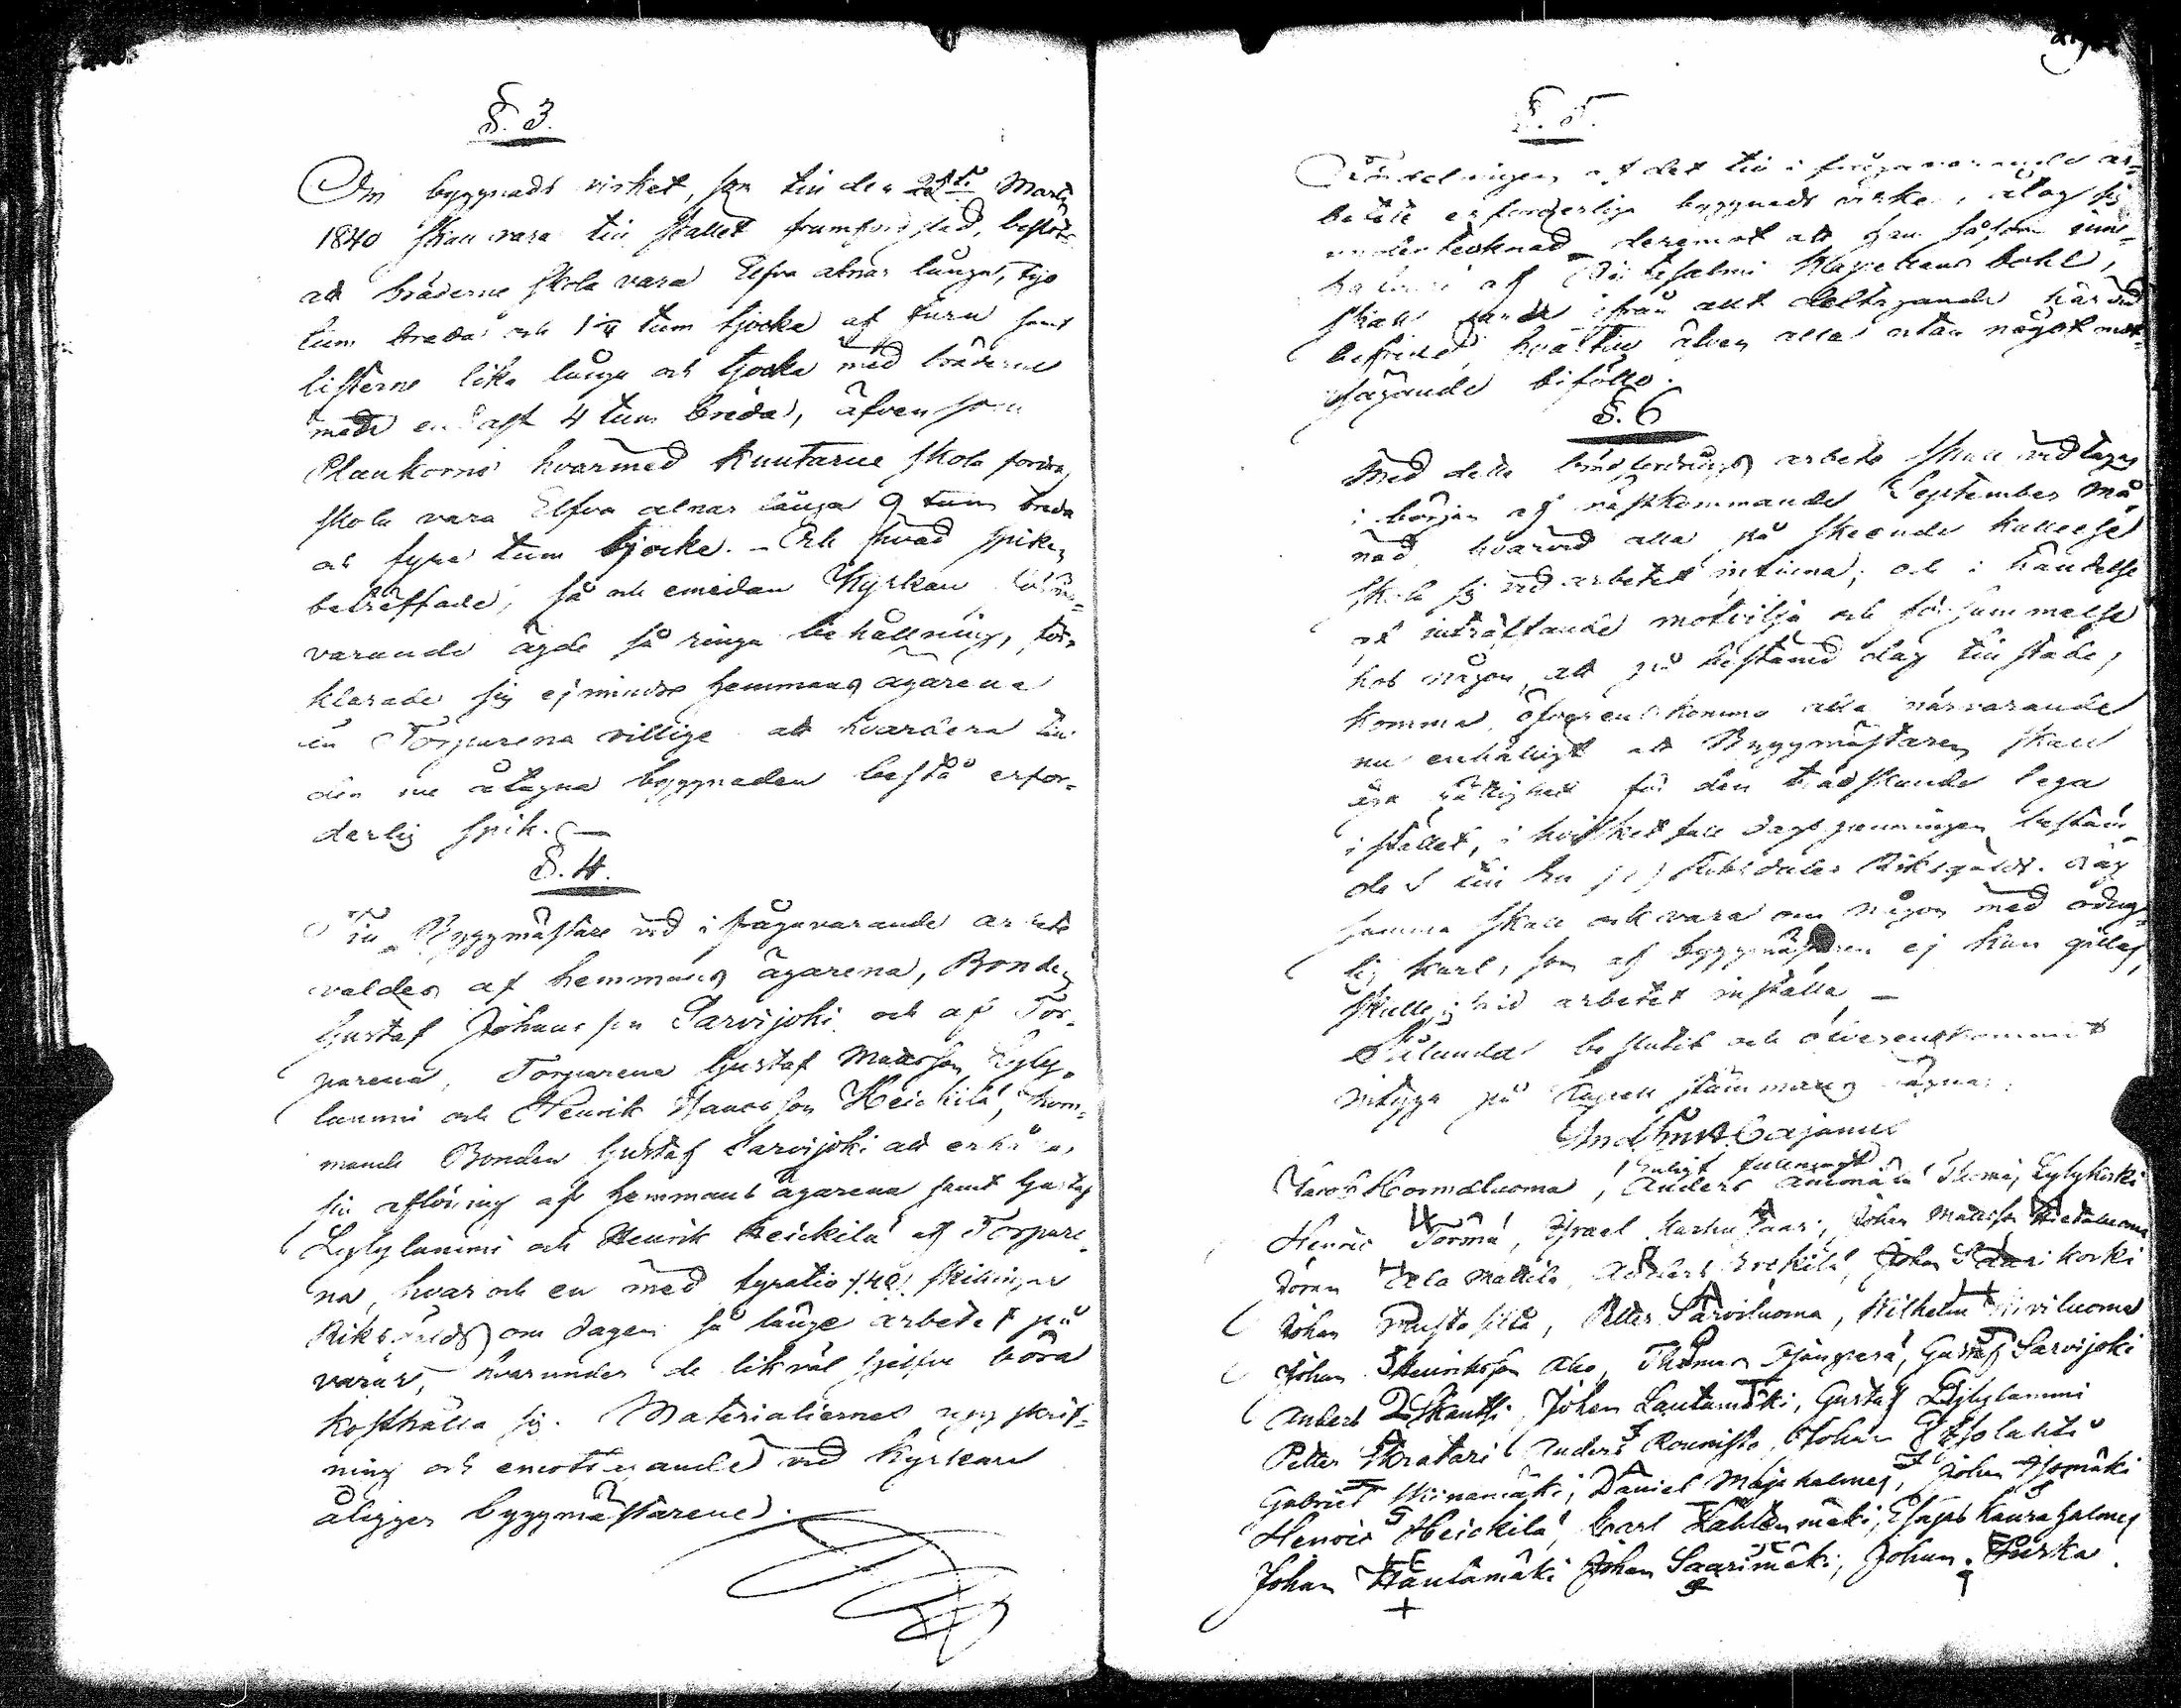 §. 3.
Om byggnads virket, som till den Martii
1840 skall vara till stället framforslad, beslöts
att bräderne skola vara Elfva alnar långa, sju
tum breda och 1¼ tum tjocka af furu samt
listerne lika långa och tjocka med bräderne
med endast 4 tum breda, äfven som
Plankorne hvarmed knutarne skola fordras
skola vara Elfva alnar långa 9 tum breda
och fyra tum tjocke. – Och hvad spiken
beträffade, så och emedan Kyrkan
varande ägde så ringa behållning, för-
klarade sig ej mindre hemmans ägarena
än Torparena villige att hvardera till
den nu åtagna byggnaden bestå erfor-
derlig spik. –
§. 4.
Till Byggmästare vid i frågavarande arbete
valdes af hemmans ägarena, Bonden
Gustaf Johansson Sarvijoki och af Tor-
parena, Torparena Gustaf Mattsson Lyly-
lammi och Henrik Heickilä, kom-
mande Bonden Gustaf Sarvijoki att erhålla
sin aflöning af hemmans ägarena samt Gustaf
Lylylammi och Henrik Heickilä af Torpare-
na, hvar och en med fyratio /40/ skillingar
Riksgälds om dagen så länge arbetet på
varar, hvarunder de likväl sjelfve böra
kosthålla sig. Materialiernes uppskrif-
ning och emottagande vid Kyrkan
åligger byggmästarene.
§. 5.
Fördelningen af det till i frågavarande ar-
bete erforderliga byggnads virke, åtog sig
undertecknad deremot att han såsom inne-
hafvare af Kapellans bohl,
skall vara ifrån allt deltagande härvid
befriad, hvartill äfven alla utan något mot-
sägande biföllo.
§. 6
Med detta arbete skall vidtagas
i början af nästkommande September må-
nad, hvarvid alla på skeende kallelse
skola sig vid arbetet infinna; och i händelse
af inträffande motvilja och försummelse
hos någon, att på bestämd dag tillstädes
komma, öfverenskommo alla närvarande
nu enhälligt att Byggmästaren skall
äga rättighet för den tredskande lega
i stället, i hvilket fall dagspenningen bestäm-
des till En /1/ Riksdaler Riksgälds. Lag
samma skall ock vara om någon med odug-
lig karl, som af byggmästaren ej kan gillas,
skulle sig vid arbetet inställa –
Sålunda beslutit och öfverenskommit
intyga på Kapell stämmans vägnar:
And. Gust. Cajanus
Enligt fullmagt
Jacob Kornaluoma, Anders Ammälä Thomas Lylykoski
Henric Törmä, Israel Karhusaari, Johan Mattsson Hietaluoma
Jöran Ala Mattila, Anders Erckilä, Johan Saarikoski
Johan Mustasilta, Petter Sarviluoma, Wilhelm Kiviluoma
Johan Henriksson Aho, Thomas, Gustaf Sarvijoki
Anders Skantsi, Johan Lautamäki, Gustaf Lylylammi
Petter Skratari Anders Rounisto, Johan Isolahti
Gabriel Hinamäki, Daniel Majahalmes, Johan Isomäki
Henric Heickilä, Carl Lahtenmäki, Esajas Kaurahalmes
Johan Hautamäki Johan Saarimäki, Johan Turka.